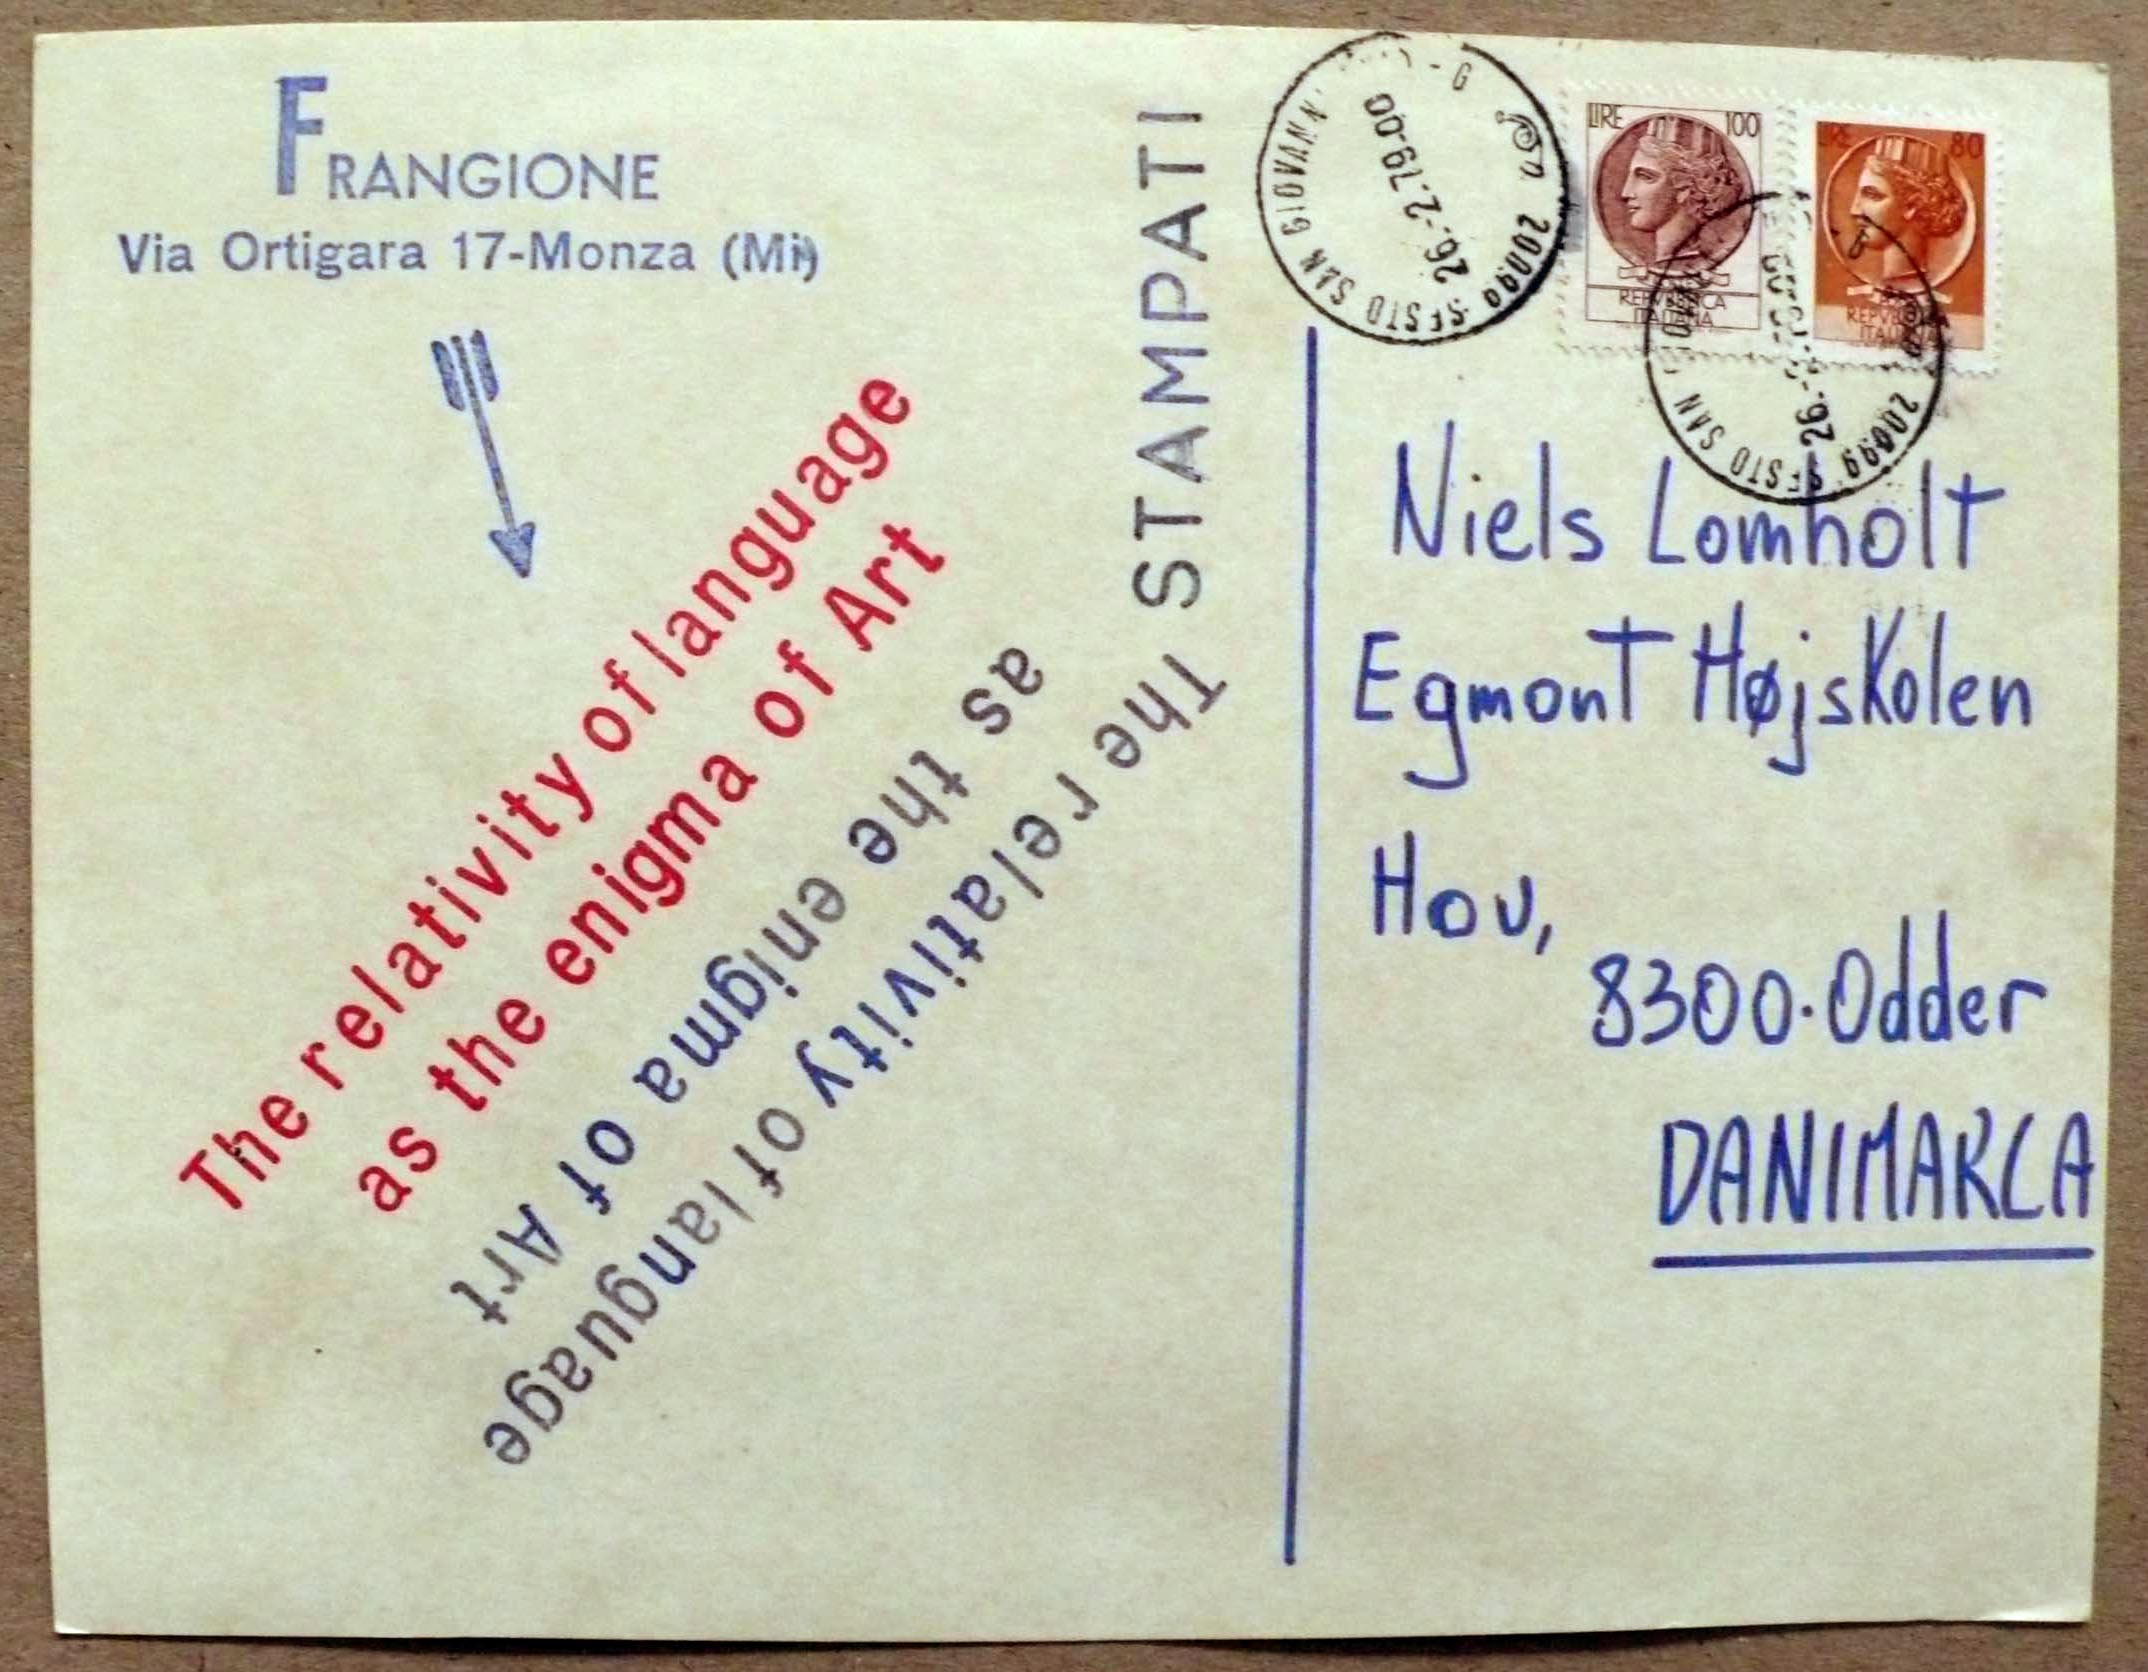 FRANGIONE
Via Ortigara 17-Monza (Mi)
The relativity of language
as the enigma of Art
The relativity of language
as the enigma of Art
STAMPATI
20099 SESTO SAN GIOVANN
26.-2.79-00
LIRE 100
REPVBBLICA
ITALIANA
LIRE 80
REPVBBLICA
ITALIANA
20099 SESTO SAN
26.-
Niels Lomholt
Egmont HøjsKolen
Hov,
8300.Odder
DANIMARCA